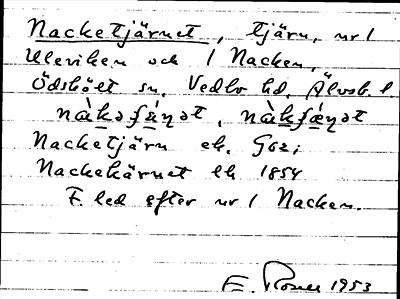 Nacketjärnet, tjärn, nr 1
Uleviken och 1 Nacken,
Ödskölt sn, Vedbo hd, Älvsb. l
nàkəʃæ̀ɳət, nàkʃæ̀ɳət
Nacketjärn ek. G02;
Nackekärnet lk 1854
F. led efter nr 1 Nacken.
E. 1953